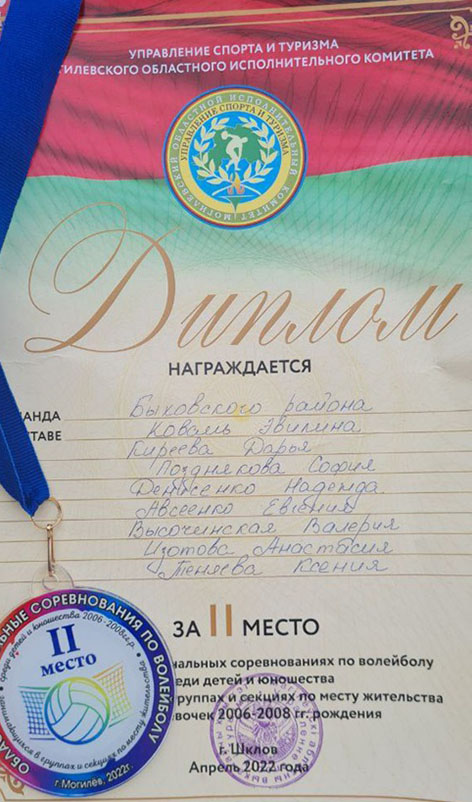 УПРАВЛЕНИЕ СПОРТА И ТУРИЗМА
ГИЛЕВСКОГО ОБЛАСТНОГО ИСПОЛНИТЕЛЬНОГО КОМИТЕТА
МОГИЛЕВСКИЙ ОБЛАСТНОЙ ИСПОЛНИТЕЛЬНЫЙ КОМИТЕТ
УПРАВЛЕНИЕ СПОРТА И ТУРИЗМА
Диплом
НАГРАЖДАЕТСЯ
АНДА Быховского района
СТАВЕ Коваль Эвилина
Киреева Дарья
Позднякова София
Денисенко Надежда
Авсеенко Евгения
Высочинская Валерия
Изотова Анастасия
Теняева Ксения
ЗА II МЕСТО
нальных соревнованиях по волейболу
еди детей и юношества
группах и секциях по месту жительства
вочек 2006-2008 гг. рождения
г. Шклов
Апрель 2022 года
ЬНЫЕ СОРЕВНОВАНИЯ ПО ВОЛЕЙБОЛУ
среди детей и юношества 2006-2008г.р.
II
место
занимающихся в группах и секциях по месту жительства
г. Могилёв, 2022г.